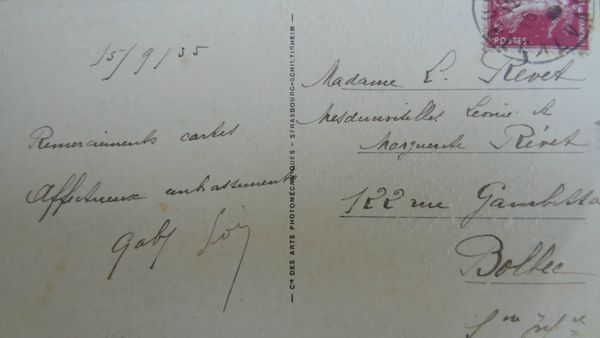 15/9/35
Remerciements cartes
Affectueux embrassements
Gaby
Cie DES ARTS PHOTOMÉCANIQUES - STRASBOURG-SCHILTIGHEIM
POSTES
Madame L. Revet
Mesdemoiselles Leonie et
Marguerite Révet
122 rue Gambetta
Bolbec
Sne Infre